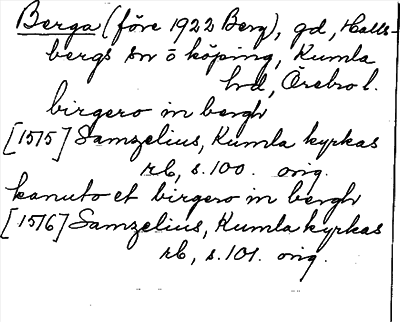 Berga (före 1922 Berg), gd, Halls-
bergs sn o köping, Kumla
hd, Örebro l.
birgero in bergh
[1515] Samzelius, Kumla kyrkas
rb, s. 100. orig.
kanuto et birgero in bergh
[1516] Samzelius, Kumla kyrkas
rb, s. 101. orig.